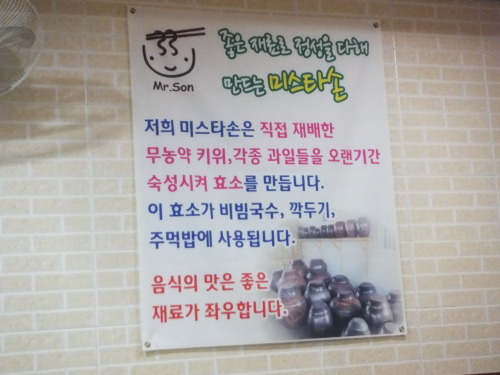 Mr.Son
좋은 재료로 정성을 다해
만드는 미스타손
저희 미스타손은 직접 재배한
무농약 키위,각종 과일들을 오랜기간
숙성시켜 효소를 만듭니다.
이 효소가 비빔국수, 깍두기,
주먹밥에 사용됩니다.
음식의 맛은 좋은
재료가 좌우합니다.